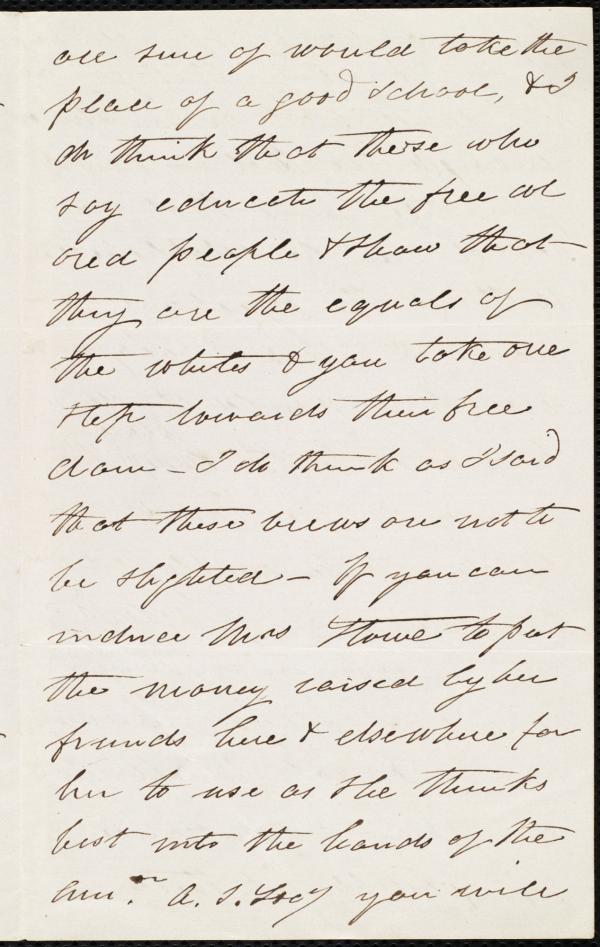 are sure of would take the
place of a good school, & I
do think that those who
say educate the free col
ored people & show that
they are the equals of
the whites & you take one
step towards their free
dom - I do think as I said
that these views are not to
be slighted - If you can
induce Mrs Stowe to put
the money raised by her
friends here & elsewhere for
her to use as she thinks
best into the hands of the
Am.n A. S. Socy you will